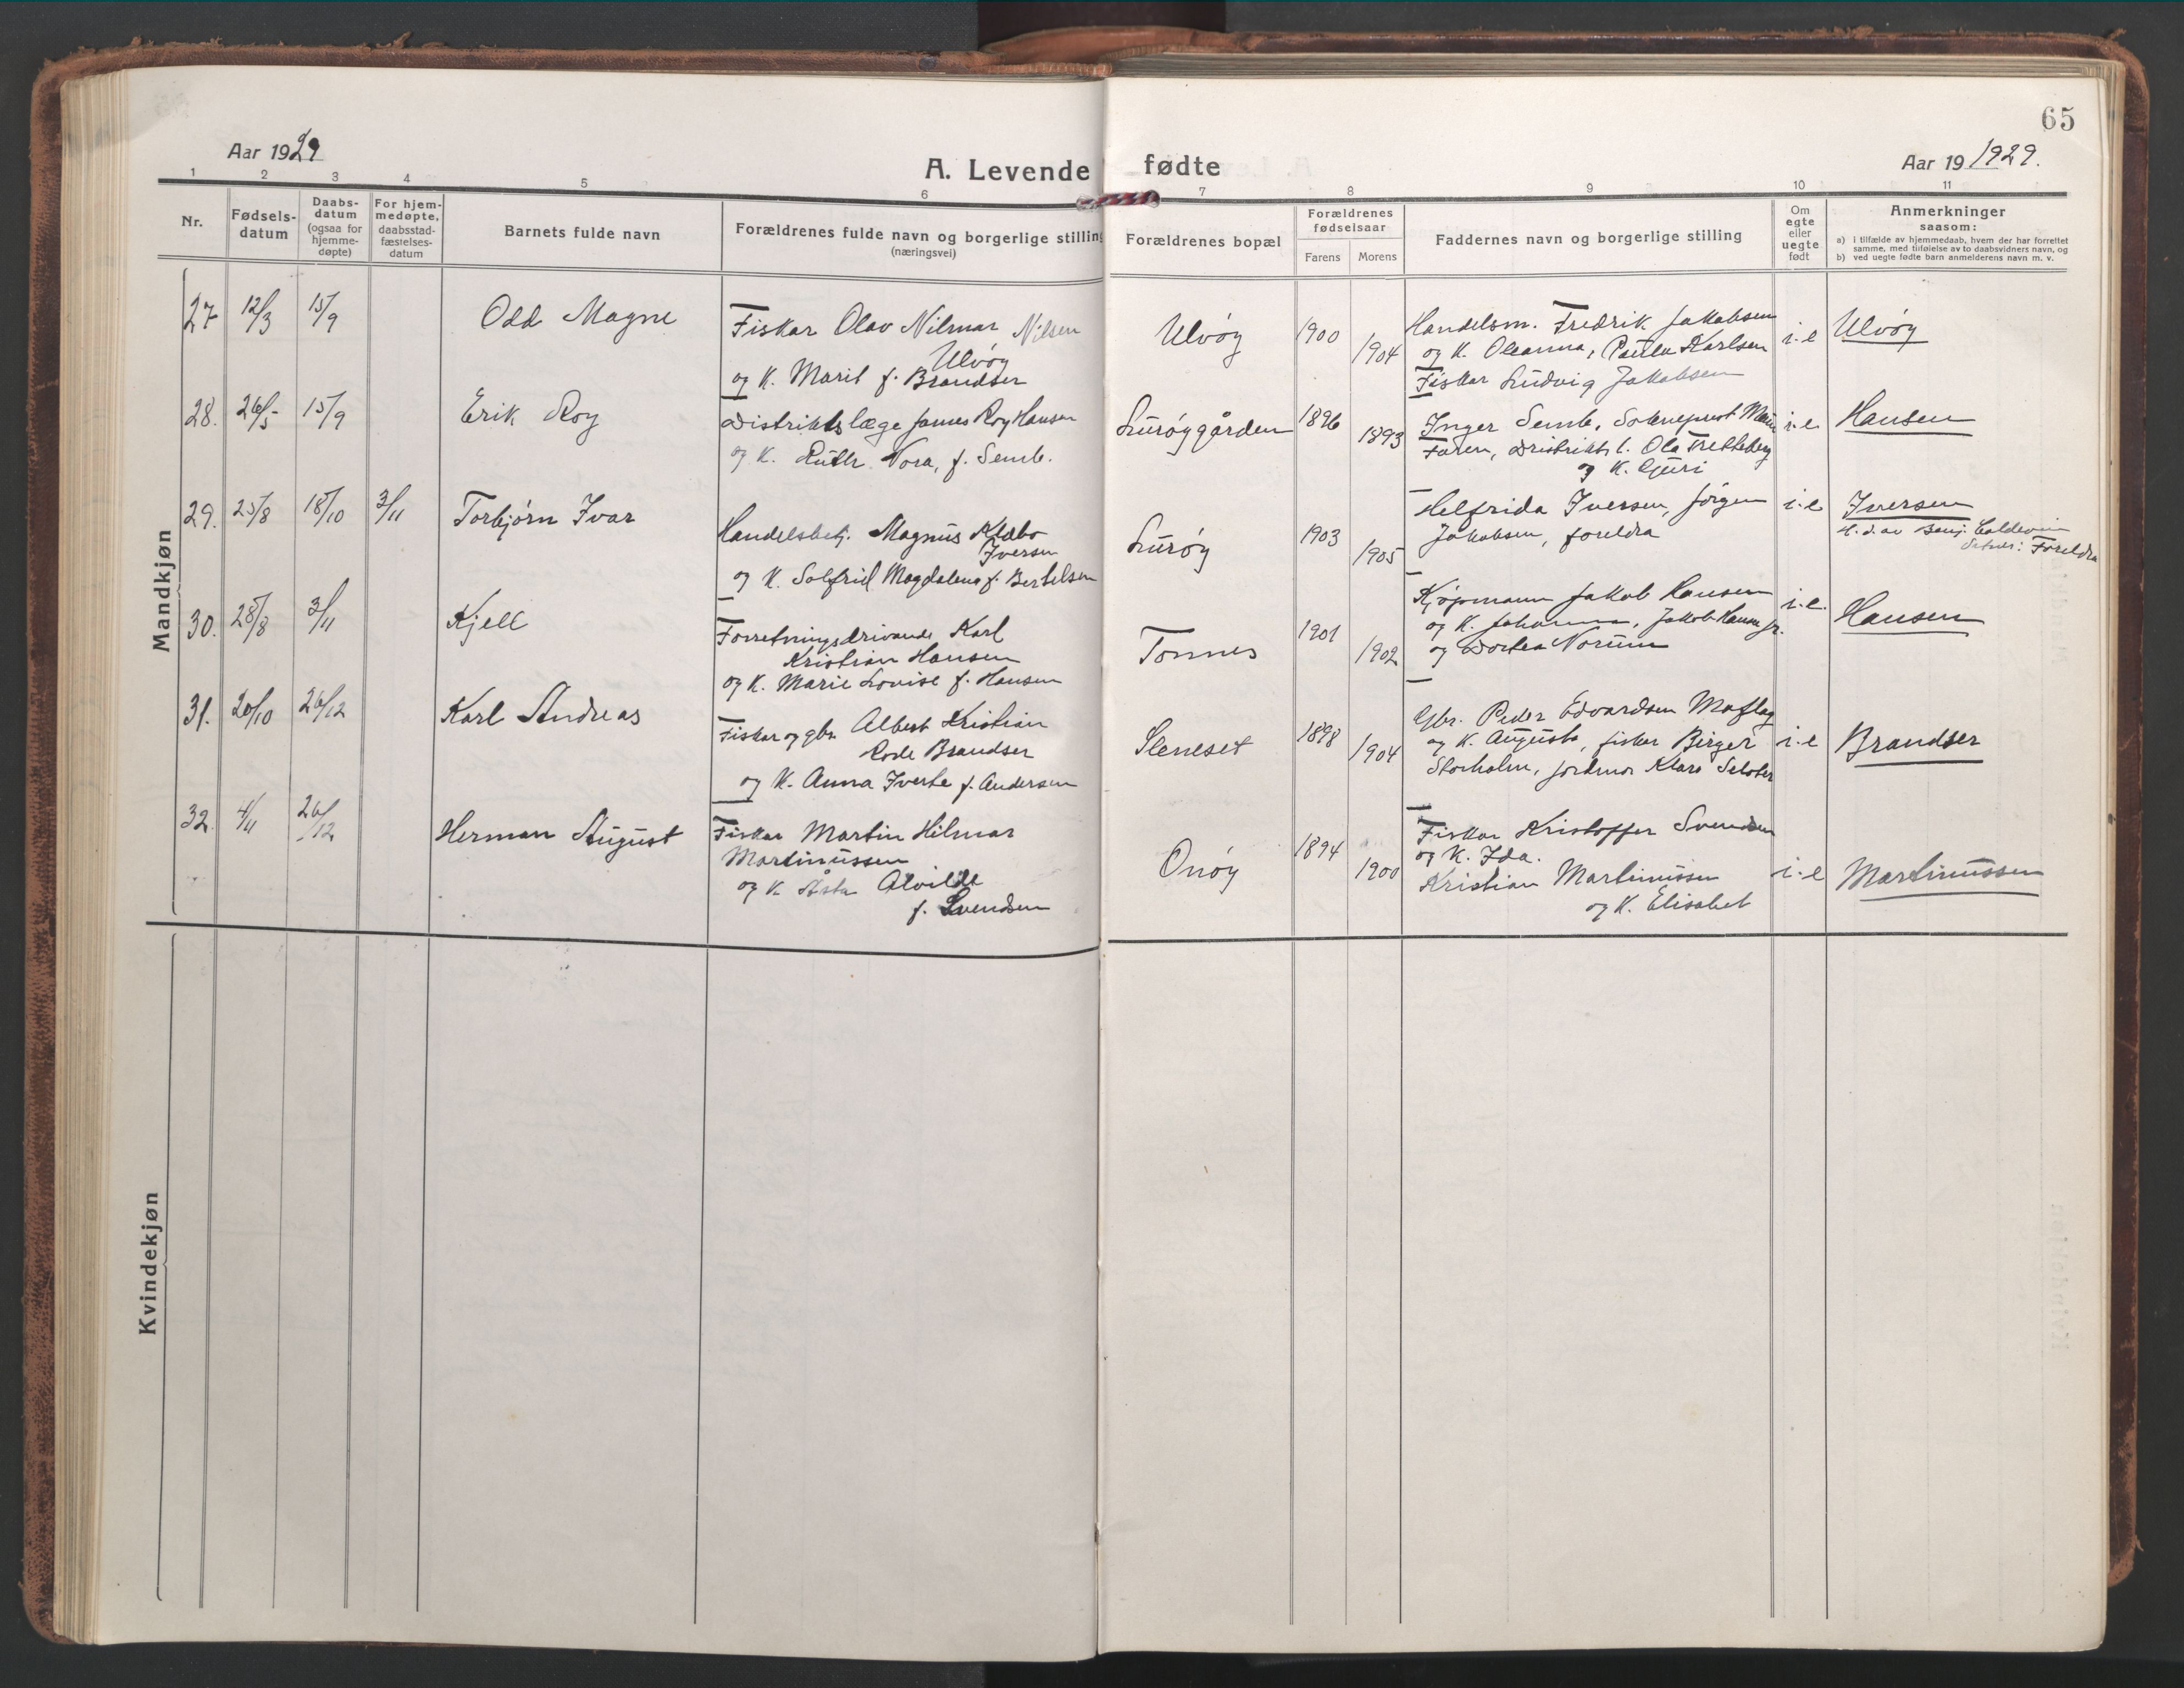 65
Aar 1929
A. Levende fødte
Aar 19 1929.
1 2 3 4 5 6 7 8 9 10 11
Nr.
Fødsels-
datum
Daabs-
datum
(ogsaa for
hjemme-
døpte)
For hjem-
medøpte,
daabsstad-
fæstelses-
datum
Barnets fulde navn
Forældrenes fulde navn og borgerlige stilling
(næringsvei)
Forældrenes bopæl
Forældrenes
fødselsaar
Farens Morens
Faddernes navn og borgerlige stilling
Om
egte
eller
uegte
født
Anmerkninger
saasom:
a) i tilfælde av hjemmedaab, hvem der har forrettet
samme, med tilføielse av to daabsvidners navn, og
b) ved uegte fødte barn anmelderens navn m. v.
Mandkjøn
27 12/3 15/9
Odd Magne
Fiskar Olav Nilmar Nilsen
Ulvøy
og K. Marit f. Brandser
Ulvøy
1900 1904
Handelsm. Fredrik Jakobsen
og K. Oleanna, Paula Karlsen
Fiskar Ludvig Jakobsen
i.e
Ulvøy
28. 26/5 15/9
Erik Roy
Distriktslæge James Roy Hansen
og K. Ruth Nora, f. Semb.
Lurøygården
1896 1893
Inger Semb, Sokneprest
Faren, Distriktsl. Ola Tretteberg
og K. Guri
i.e
Hansen
29. 25/8 18/10 3/11
Torbjørn Ivar
Handelsbetj. Magnus Klæbo
Iversen
og K. Solfrid Magdalena f. Bertelsen
Lurøy
1903 1905
Helfrida Iversen, Jörgen
Jakobsen, foreldra
i.e
Iversen
H. d. av Benj. Coldevin
Foreldra
30. 28/8 3/11
Kjell
Forretningsdrivande Karl
Kristian Hansen
og K. Marie Lovise f. Hansen
Tonnes
1901 1902
Kjøpmann Jakob Hansen
og K. Johanna, Jakob Hansen jr.
og Dortea Norum
i.e.
Hansen
31. 20/10 26/12
Karl Andreas
Fiskar og gbr. Albert Kristian
Rode Brandser
og K. Anna Iverte f. Andersen
Sleneset
1898 1904
Gbr. Peder Edvardsen Moflag
og K. Augusta, fiskar Birger
Storholm, jordmor Klara
i.e
Brandser
32. 4/11 26/12
Herman August
Fiskar Martin Hilmar
Martinussen
og K. Åsta Alvilde
f. Svendsen
Onøy
1894 1900
Fiskar Kristoffer Svendsen
og K. Ida.
Kristian Martinussen
og K. Elisabet
i.e
Martinussen
Kvindekjøn